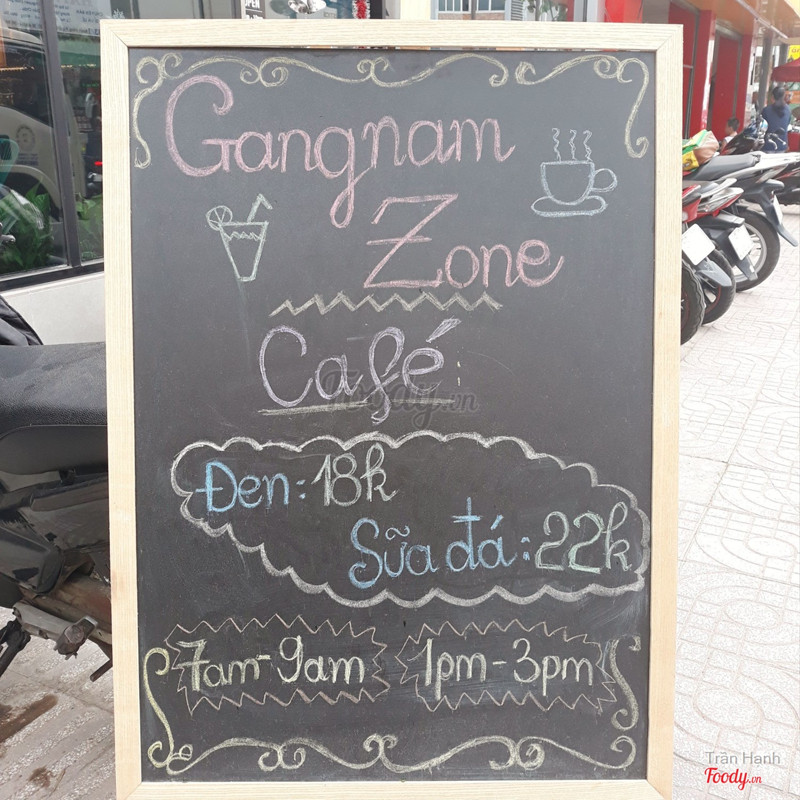 OPEN
Gangnam
Zone
Café:
Đen: 18k
Sữa đá: 22k
7am-9am
1pm-3pm
Foody.vn
Trần Hạnh
Foody.vn